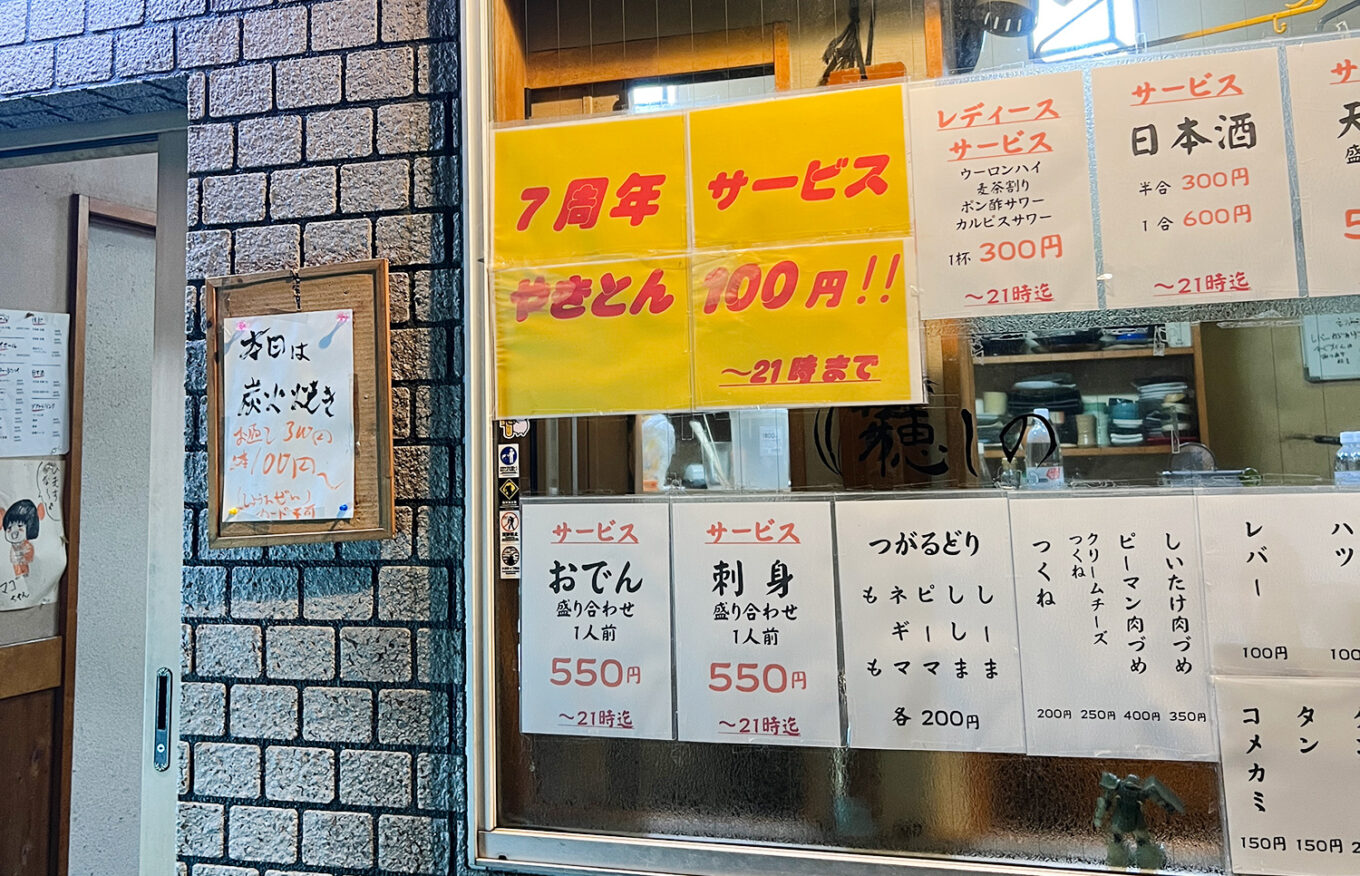 7周年 サービス
やきとん 100円!!
～21時まで
レディース
サービス
ウーロンハイ
麦茶割り
ポン酢サワー
カルピスサワー
1杯 300円
～21時迄
サービス
日本酒
半合 300円
1合 600円
～21時迄
本日は
炭火焼き
100円～
サービス
おでん
盛り合わせ
1人前
550円
～21時迄
サービス
刺身
盛り合わせ
1人前
550円
～21時迄
つがるどり
しーま
ししま
ピーマ
ネギマ
もも
各200円
しいたけ肉づめ
350円
ピーマン肉づめ
400円
クリームチーズ
つくね
250円
つくね
200円
ハツ
レバー
100円
タン
150円
コメカミ
150円